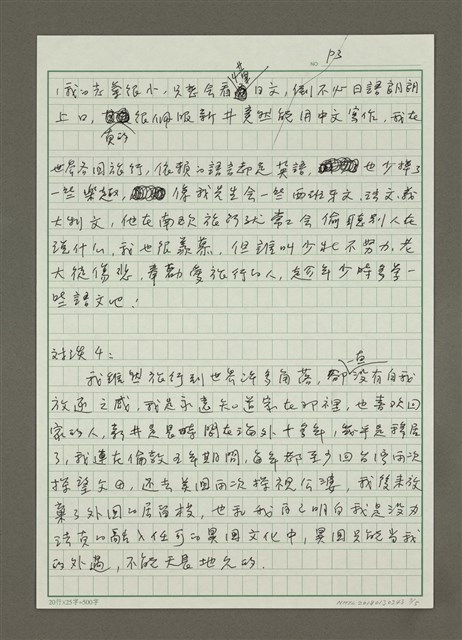 NO. P3
(我的志華很小,只想會看懂日文,倒不必日語朗朗
上口,真的很佩服新井竟然能用中文寫作,我在
世界各國旅行,依賴的語言都是英語,也少掉了
一些樂趣,像我先生會一些西班牙文、法文、義
大利文,他在南歐旅行時常常會偷聽別人在
說什么,我也很羨慕,但誰叫少壯不努力,老
大徒傷悲,奉勸愛旅行的人,趁年少時多學一
些語文吧!
对談4:
我雖然旅行到世界許多角落,卻一直沒有自我
放逐之感,我是永遠知道家在那裡,也喜歡回
家的人,新井是長時間在海外十多年,幾乎是移居
了,我連在倫敦五年期間,每年都至少回台灣兩次
探望父母,還去美國兩次探視公婆,我後來放
棄了外國的居留權,也和我自己明白我是沒办
法真的融入任何的異國文化中,異國只能當我
的外遇,不能天長地久的.
20行×25字=500字